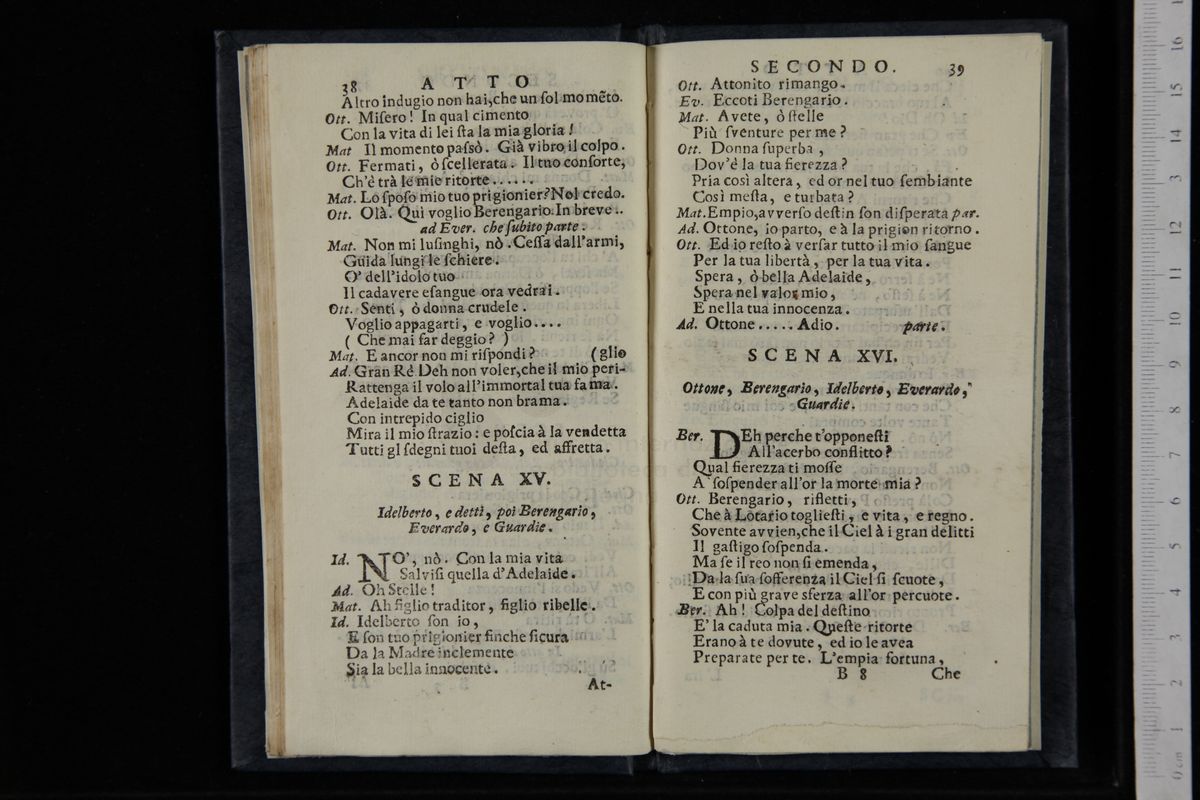 38 ATTO
Altro indugio non hai,che un ſol momẽto.
Ott. Miſero! In qual cimento
Con la vita di lei ſta la mia gloria!
Mat Il momento paſsò. Già vibro il colpo.
Ott. Fermati, ò ſcellerata. Il tuo conſorte,
Ch'è trà le mie ritorte......
Mat. Lo ſpoſo mio tuo prigionier? Nol credo.
Ott. Olà. Quì voglio Berengario. In breve..
ad Ever. che ſubito parte.
Mat. Non mi luſinghi, nò. Ceſſa dall'armi,
Guida lungi le ſchiere.
O' dell'idolo tuo
Il cadavere eſangue ora vedrai.
Ott. Senti, ò donna crudele.
Voglio appagarti, e voglio....
( Che mai far deggio? )
Mat. E ancor non mi riſpondi? (glio
Ad. Gran Rè Deh non voler,che il mio peri-
Rattenga il volo all'immortal tua fama.
Adelaide da te tanto non brama.
Con intrepido ciglio
Mira il mio ſtrazio: e poſcia à la vendetta
Tutti gl ſdegni tuoi deſta, ed affretta.
SCENA XV.
Idelberto, e detti, poi Berengario,
Everardo, e Guardie.
Id. NO', nò. Con la mia vita
Salviſi quella d'Adelaide.
Ad. Oh Stelle!
Mat. Ah figlio traditor, figlio ribelle.
Id. Idelberto ſon io,
E ſon tuo prigionier finche ſicura
Da la Madre inclemente
Sia la bella innocente.
At-
SECONDO. 39
Ott. Attonito rimango.
Ev. Eccoti Berengario.
Mat. Avete, ò ſtelle
Più ſventure per me?
Ott. Donna ſuperba,
Dov'è la tua fierezza?
Pria così altera, ed or nel tuo ſembiante
Così meſta, e turbata?
Mat. Empio,avverſo deſtin ſon diſperata par.
Ad. Ottone, io parto, e à la prigion ritorno.
Ott. Ed io reſto à verſar tutto il mio ſangue
Per la tua libertà, per la tua vita.
Spera, ò bella Adelaide,
Spera nel valor mio,
E nella tua innocenza.
Ad. Ottone..... Adio. parte.
SCENA XVI.
Ottone, Berengario, Idelberto, Everardo,
Guardie.
Ber. DEh perche t'opponeſti
All'acerbo conflitto?
Qual fierezza ti moſſe
A ſoſpender all'or la morte mia?
Ott. Berengario, rifletti,
Che à Lotario toglieſti, e vita, e regno.
Sovente avvien,che il Ciel à i gran delitti
Il gaſtigo ſoſpenda.
Ma ſe il reo non ſi emenda,
Da la ſua ſofferenza il Ciel ſi ſcuote,
E con più grave sferza all'or percuote.
Ber. Ah! Colpa del deſtino
E' la caduta mia. Queſte ritorte
Erano à te dovute, ed io le avea
Preparate per te. L'empia fortuna,
B 8 Che
0 cm 1 2 3 4 5 6 7 8 9 10 11 12 13 14 15 16